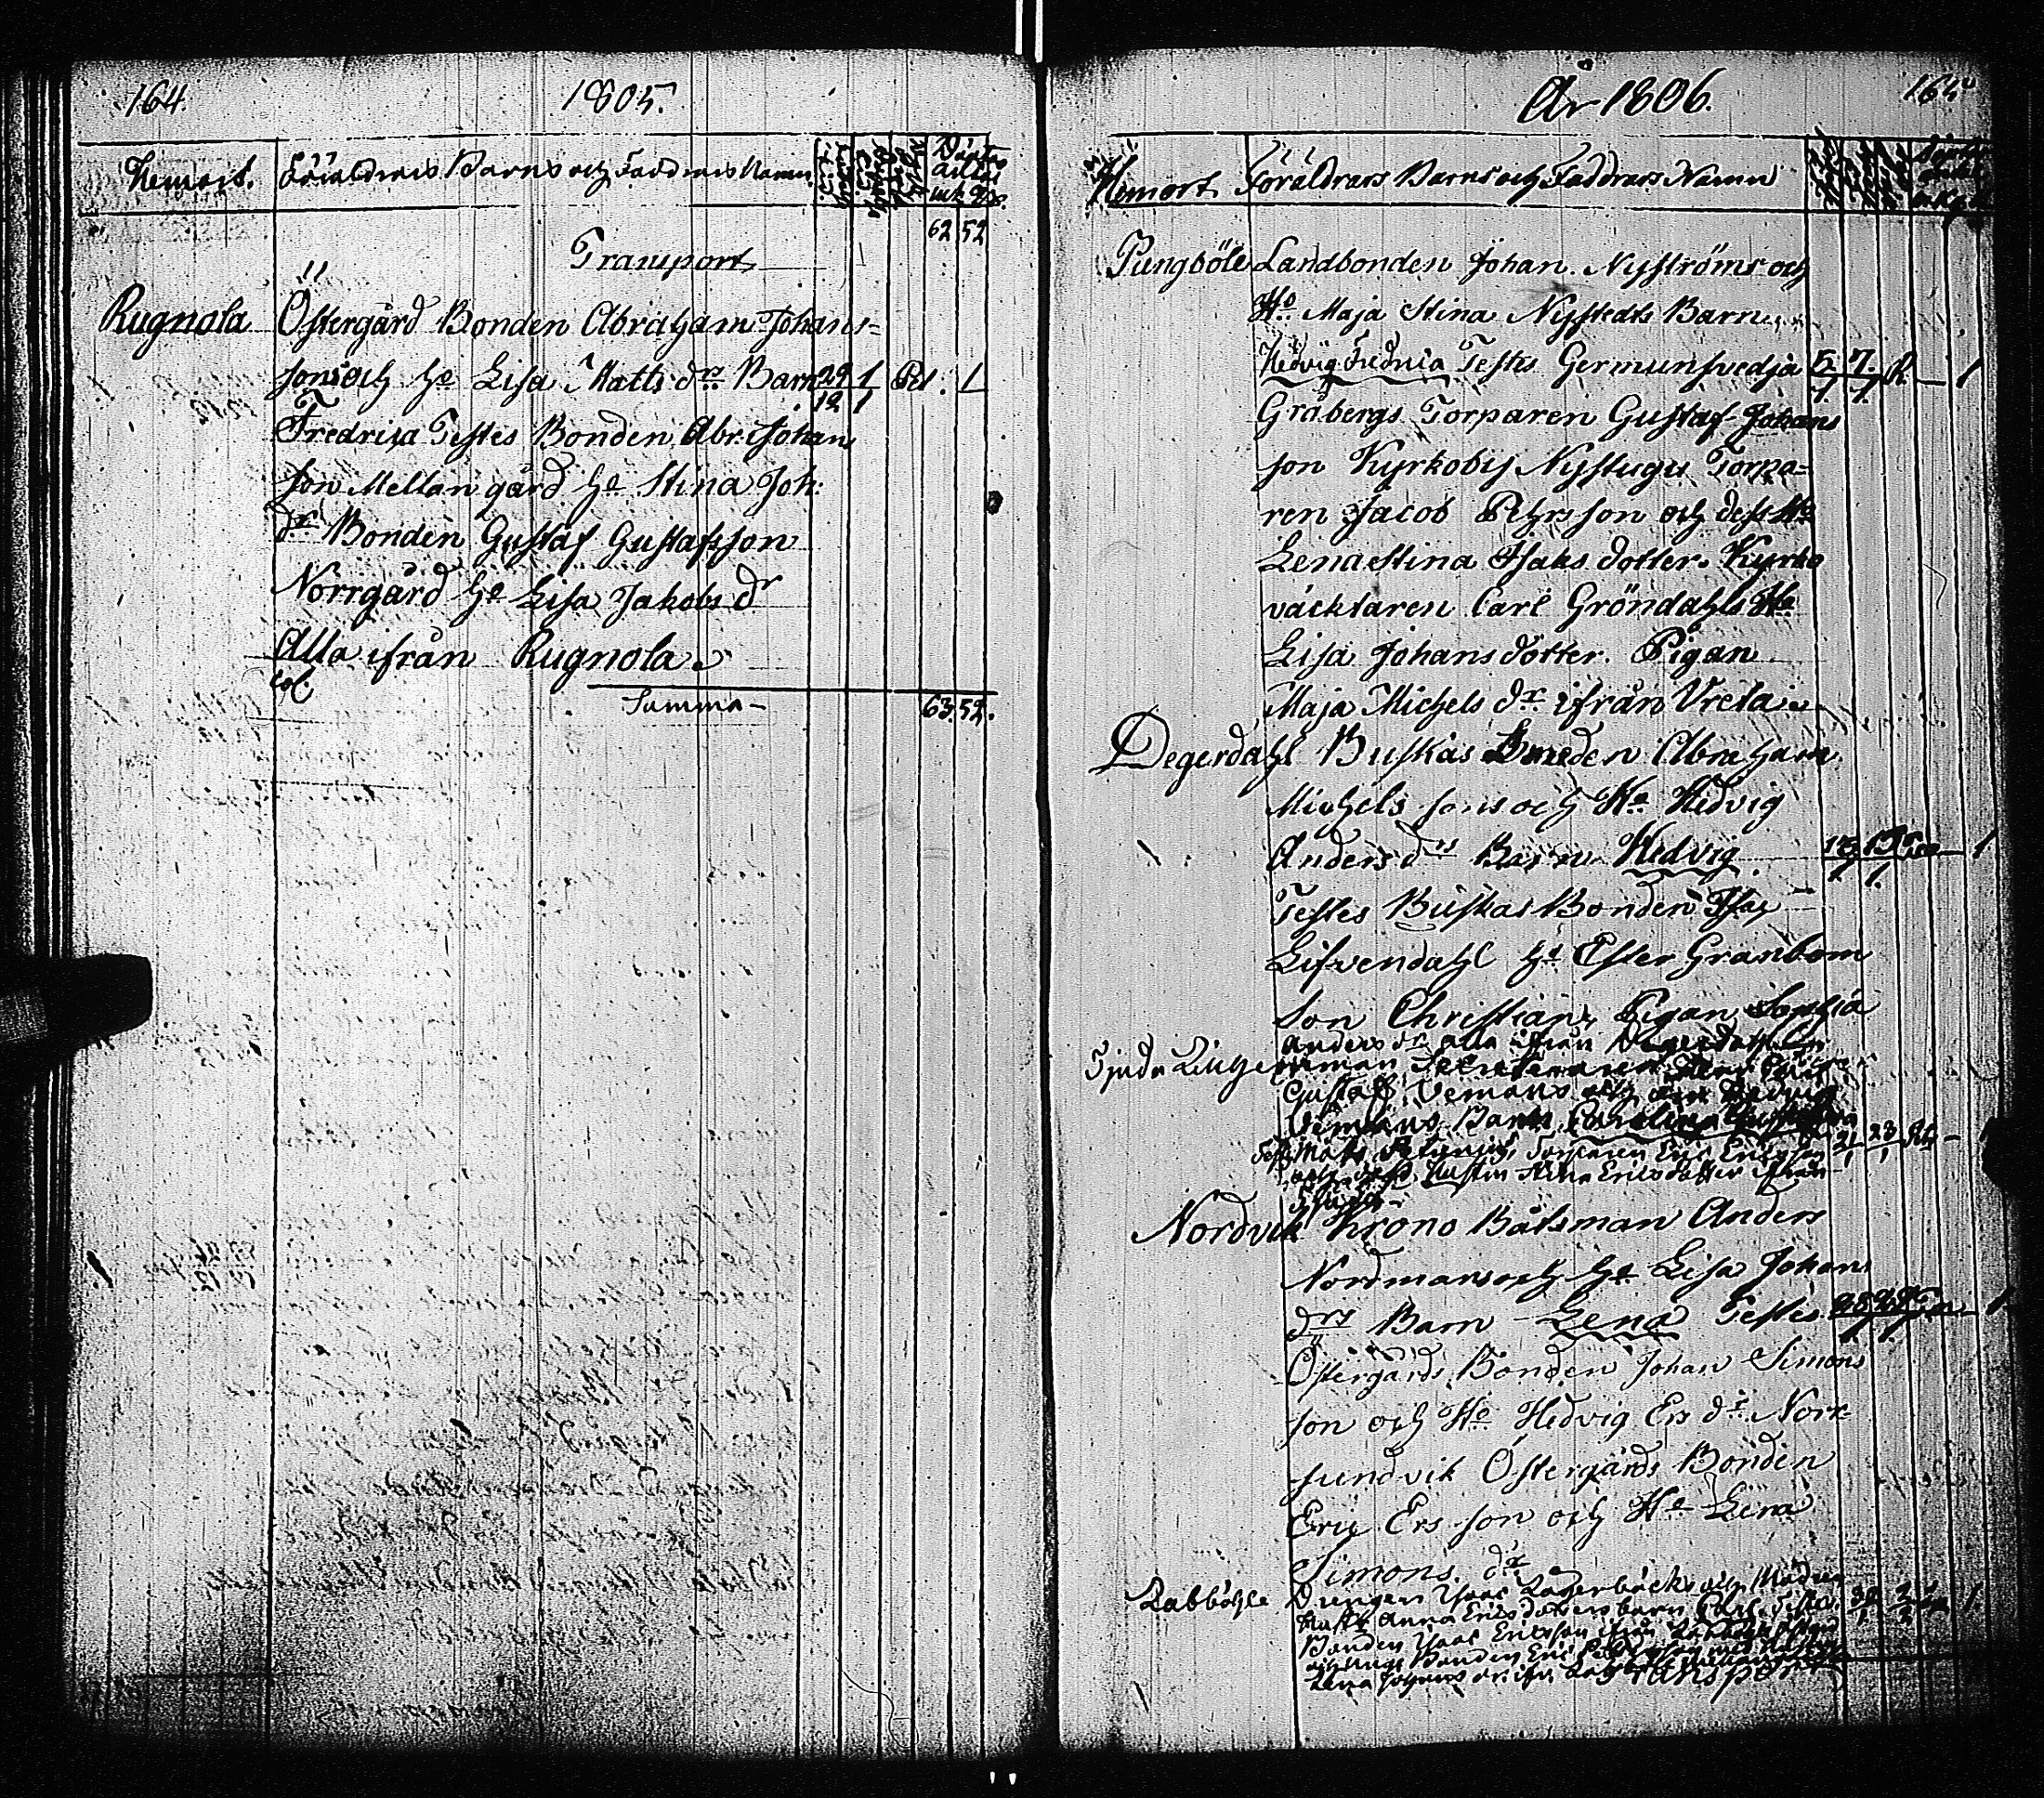 164. 1805.
Hemort. Föräldrars Barns och Faddrars Namn
62 52
Transport
Rugnola Östergård Bonden Abraham Johans-
sons och He Lisa Matts drs Barn 29/12 1/1 Rd. 1
Fredrica Testes Bonden Abr: Johans
son Mellangård He Stina Joh:
dr Bonden Gustaf Gustafsson
Norrgård He Lisa Jakobs dr
Alla ifrån Rugnola.
Summa 63. 52.
År 1806. 165
Hemort Föräldrars Barns och Faddrars Namn
Pungböle Landbonden Johan Nyströms och
Ho Maja Stina Nystedts Barn
Hedvig Fredrica Testes Germunsvedja 5/1 7/1 R 1
Gråbergs Torparen Gustaf Johans
son Kyrkoby Nystugu Torpa-
ren Jacob Pehrsson och dess Ho
Lena Stina Isaks dotter. Kyrko
väcktaren Carl Gröndahls Ho
Lisa Johans dotter. Pigan
Maja Michels dr ifrån Vreta
Degerdahl Buskas Smeden Abraham
Michels sons och Ho Hedvig
Anders drs Barn Hedvig 1
Testes Buskas Bonden Isac
Lifvendahl He Ester Granbom
Son Christian, Pigan Sophia
Anders dr alla ifrån Degerdahl
Tjuda
Gustaf Vemans och Hedvig
Vemans Barn Carolina 21/1 23/1
Torparen Eric Ericsson
och dess Hustru Stina Ericsdotter ifrån
Nordvik Krono Båtsman Anders
Nordmans och He Lisa Johans
drs Barn Lena Testes 1
Östergårds Bonden Johan Simons
son och Ho Hedvig Ers dr Norr-
sundvik Östergårds Bonden
Eric Ers son och Ho Lena
Simons dr
Rabböhle Drengen Isaac Lagerbäcks och
Hustr Anna Ericsdotters barn Carl Testes 1.
Bonden Isaac Ericsson ifrån
Bonden Eric
Lena Johans dr
Transport